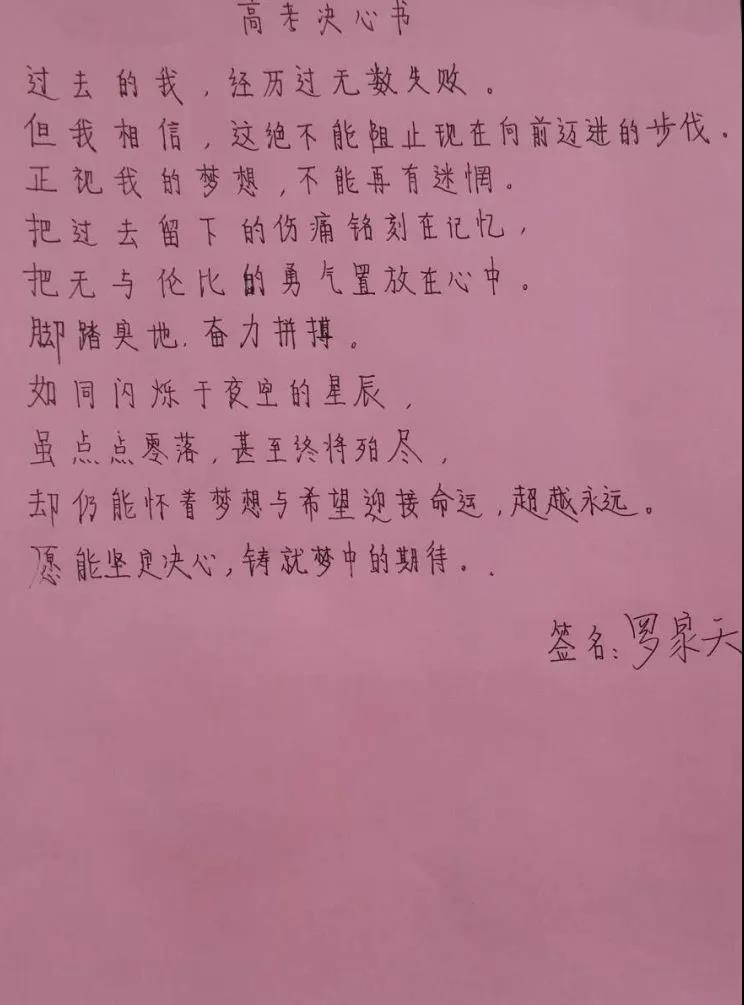 高考决心书
过去的我，经历过无数失败。
但我相信，这绝不能阻止现在向前迈进的步伐。
正视我的梦想，不能再有迷惘。
把过去留下的伤痛铭刻在记忆，
把无与伦比的勇气置放在心中。
脚踏实地，奋力拼搏。
如同闪烁于夜空的星辰，
虽点点零落，甚至终将殆尽，
却仍能怀着梦想与希望迎接命运，超越永远。
愿能坚定决心，铸就梦中的期待。
签名：罗家天